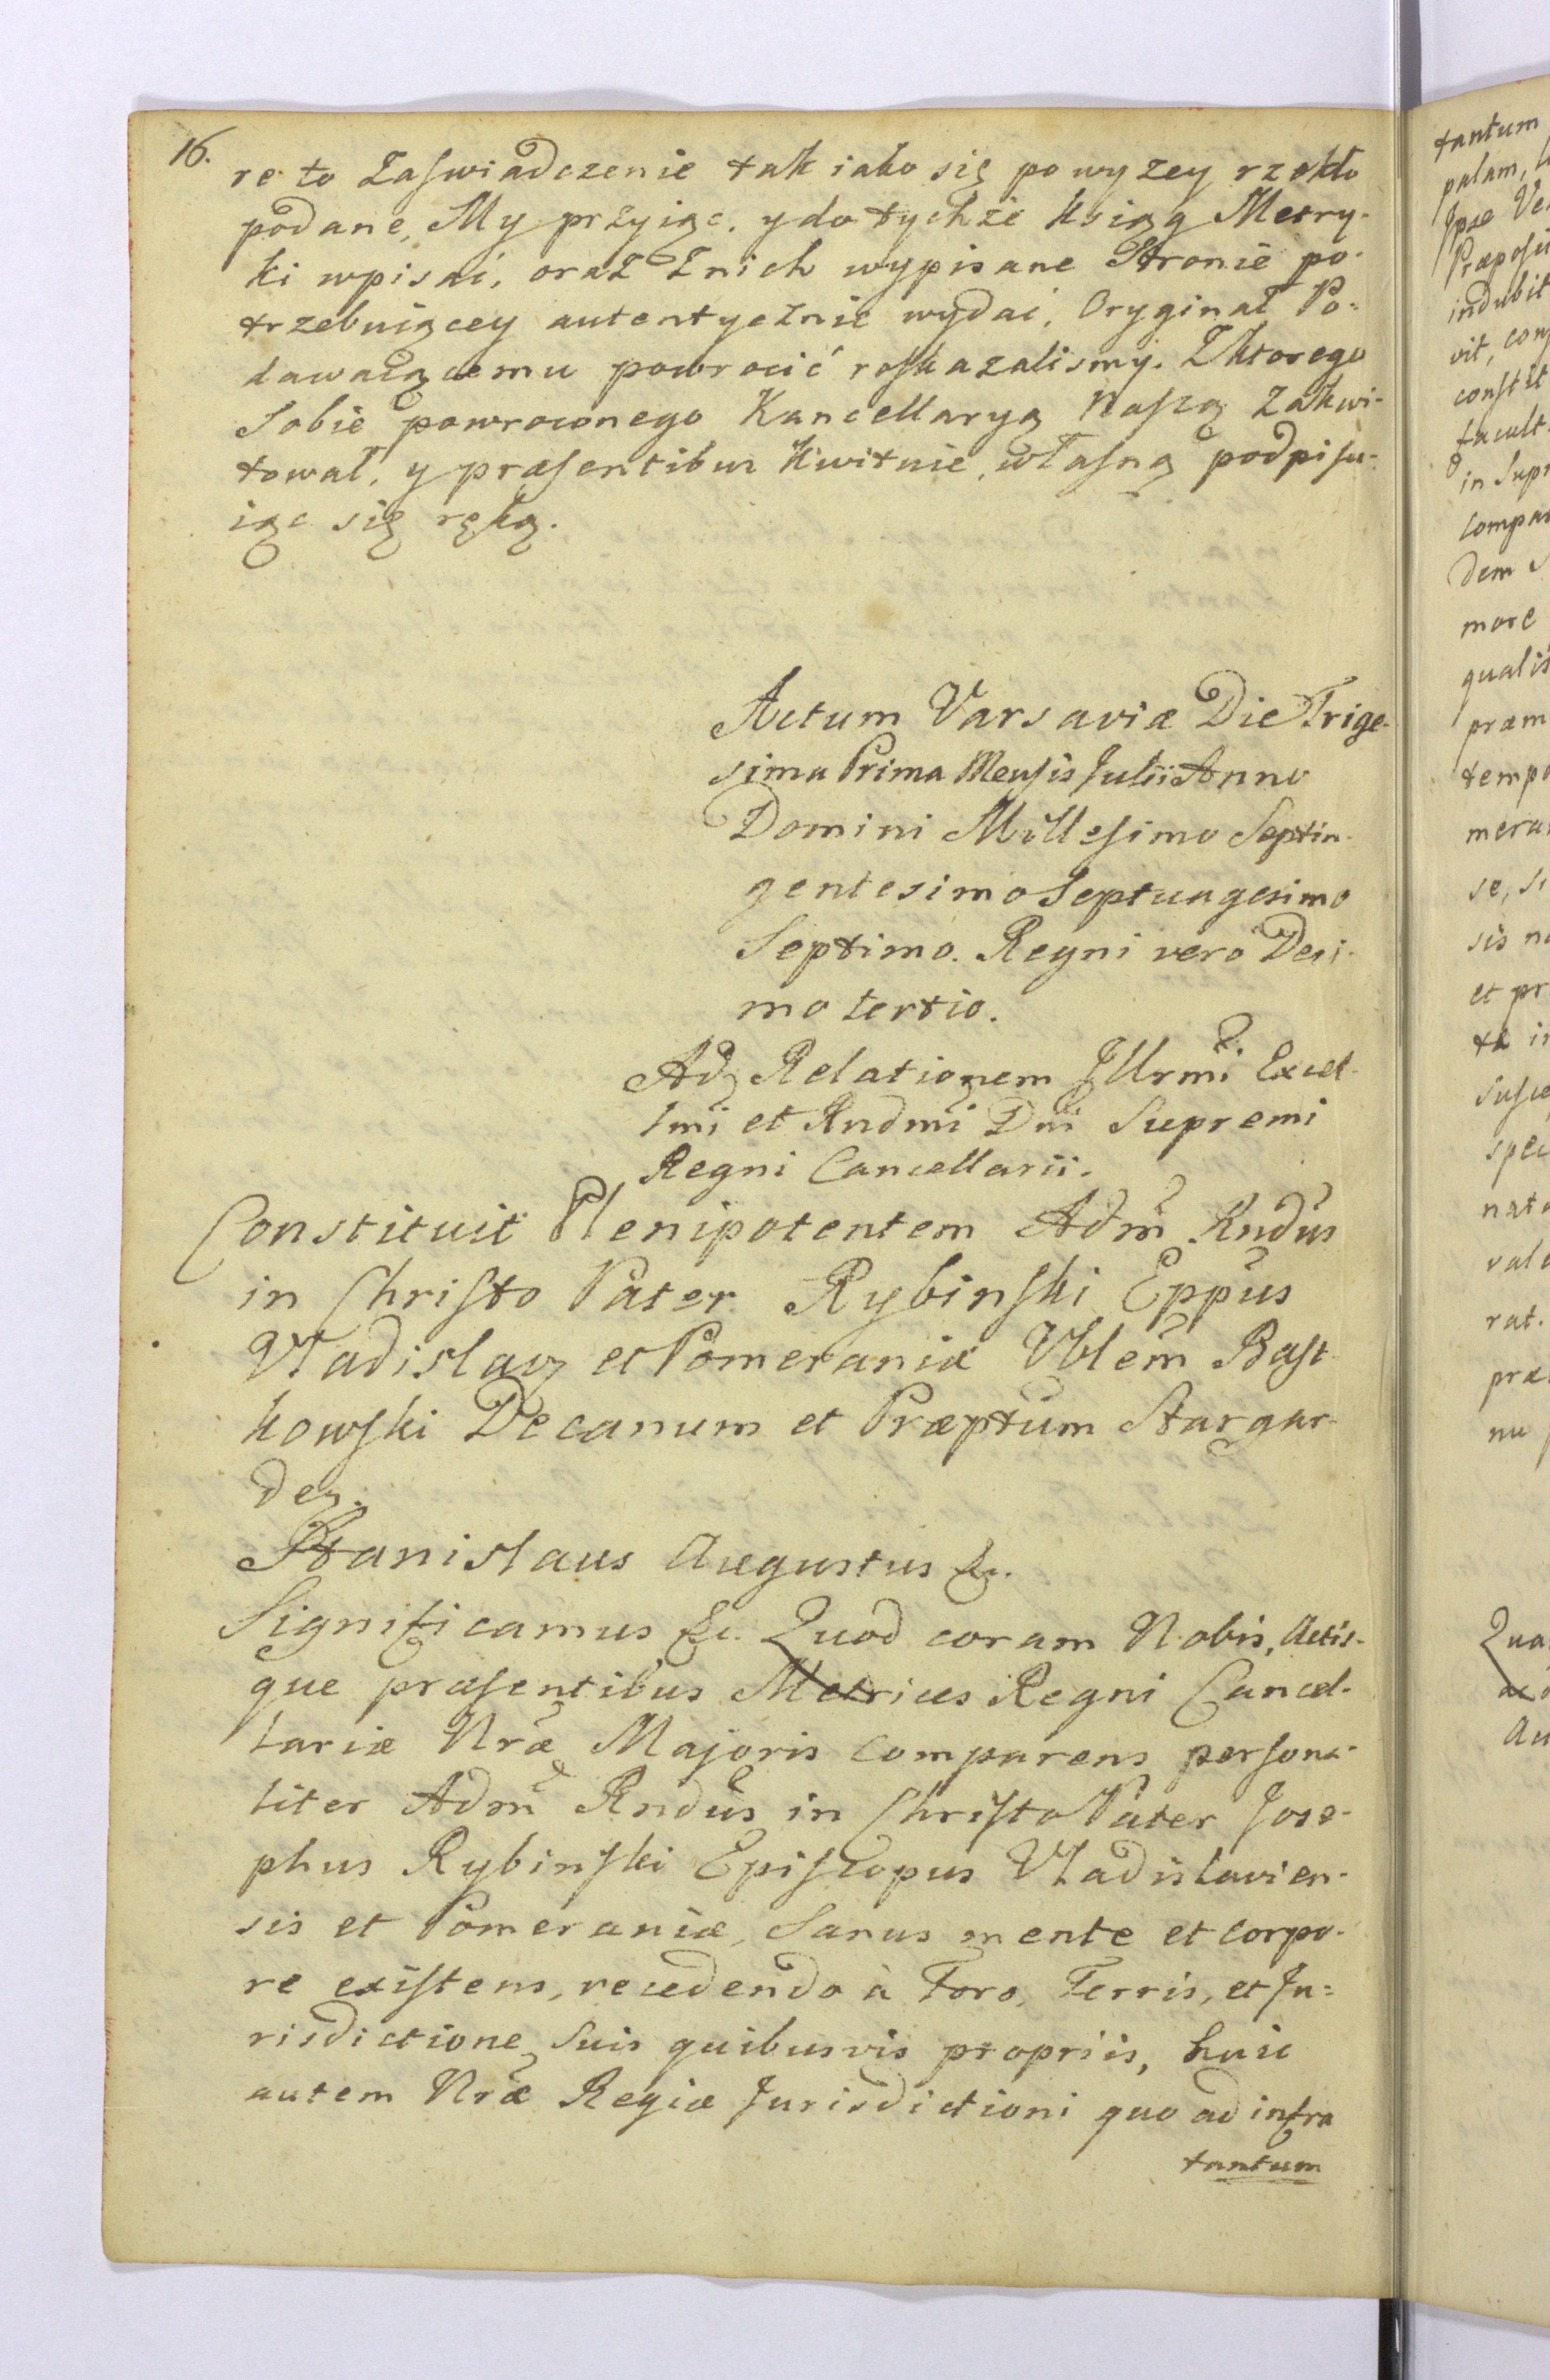 16.
re to Zaswiadczenie tak iako się powyzey rzekło
podane, My przyiąc, y do tychże Ksiąg Metry-
ki wpisać, oraz Znich wypisane Stronie po-
trzebuiącey autentycznie wydać, Oryginał Po-
dawaiącemu powrocić roskazalismy. Z ktorego
Sobie powroconego Kancellaryą Naszą Zakwi-
tował, y præsentibus Kwituie, własną podpisu-
iąc się ręką.
Actum Varsaviæ Die Trige-
sima Prima Mensis Julii Anno
Domini Millesimo Septin-
gentesimo Septuagesimo
Septimo. Regni vero Deci-
mo tertio.
Ad Relationem Jllrmi Excel-
lmi et Rndmi Dni Supremi
Regni Cancellarii.
Constituit Plenipotentem Adm Rndus
in Christo Pater Rybinski Eppus
Vladislav et Pomeraniæ Vblem Bast-
kowski Decanum et Præptum Stargar-
den.
Stanislaus Augustus &c.
Significamus &c. Quod coram Nobis, Actis-
que præsentibus Metrices Regni Cancel-
lariæ Nræ Majoris comparens persona-
liter Adm Rndus in Christo Pater Jose-
phus Rybinski Episcopus Vladislavien-
sis et Pomeraniæ, Sanus mente et corpo-
re existens, recedendo à Foro, Terris, et Ju-
risdictione Suis quibusvis propriis, huic
autem Nræ Regiæ Jurisdictioni quo ad infra
tantum
tantum
palam,
Jpse
indubit
vit,
constit
facult
in Supr
compar
dem
more
qualis
præm
tempo
se,
sis
et pr
rat.
præ
nu